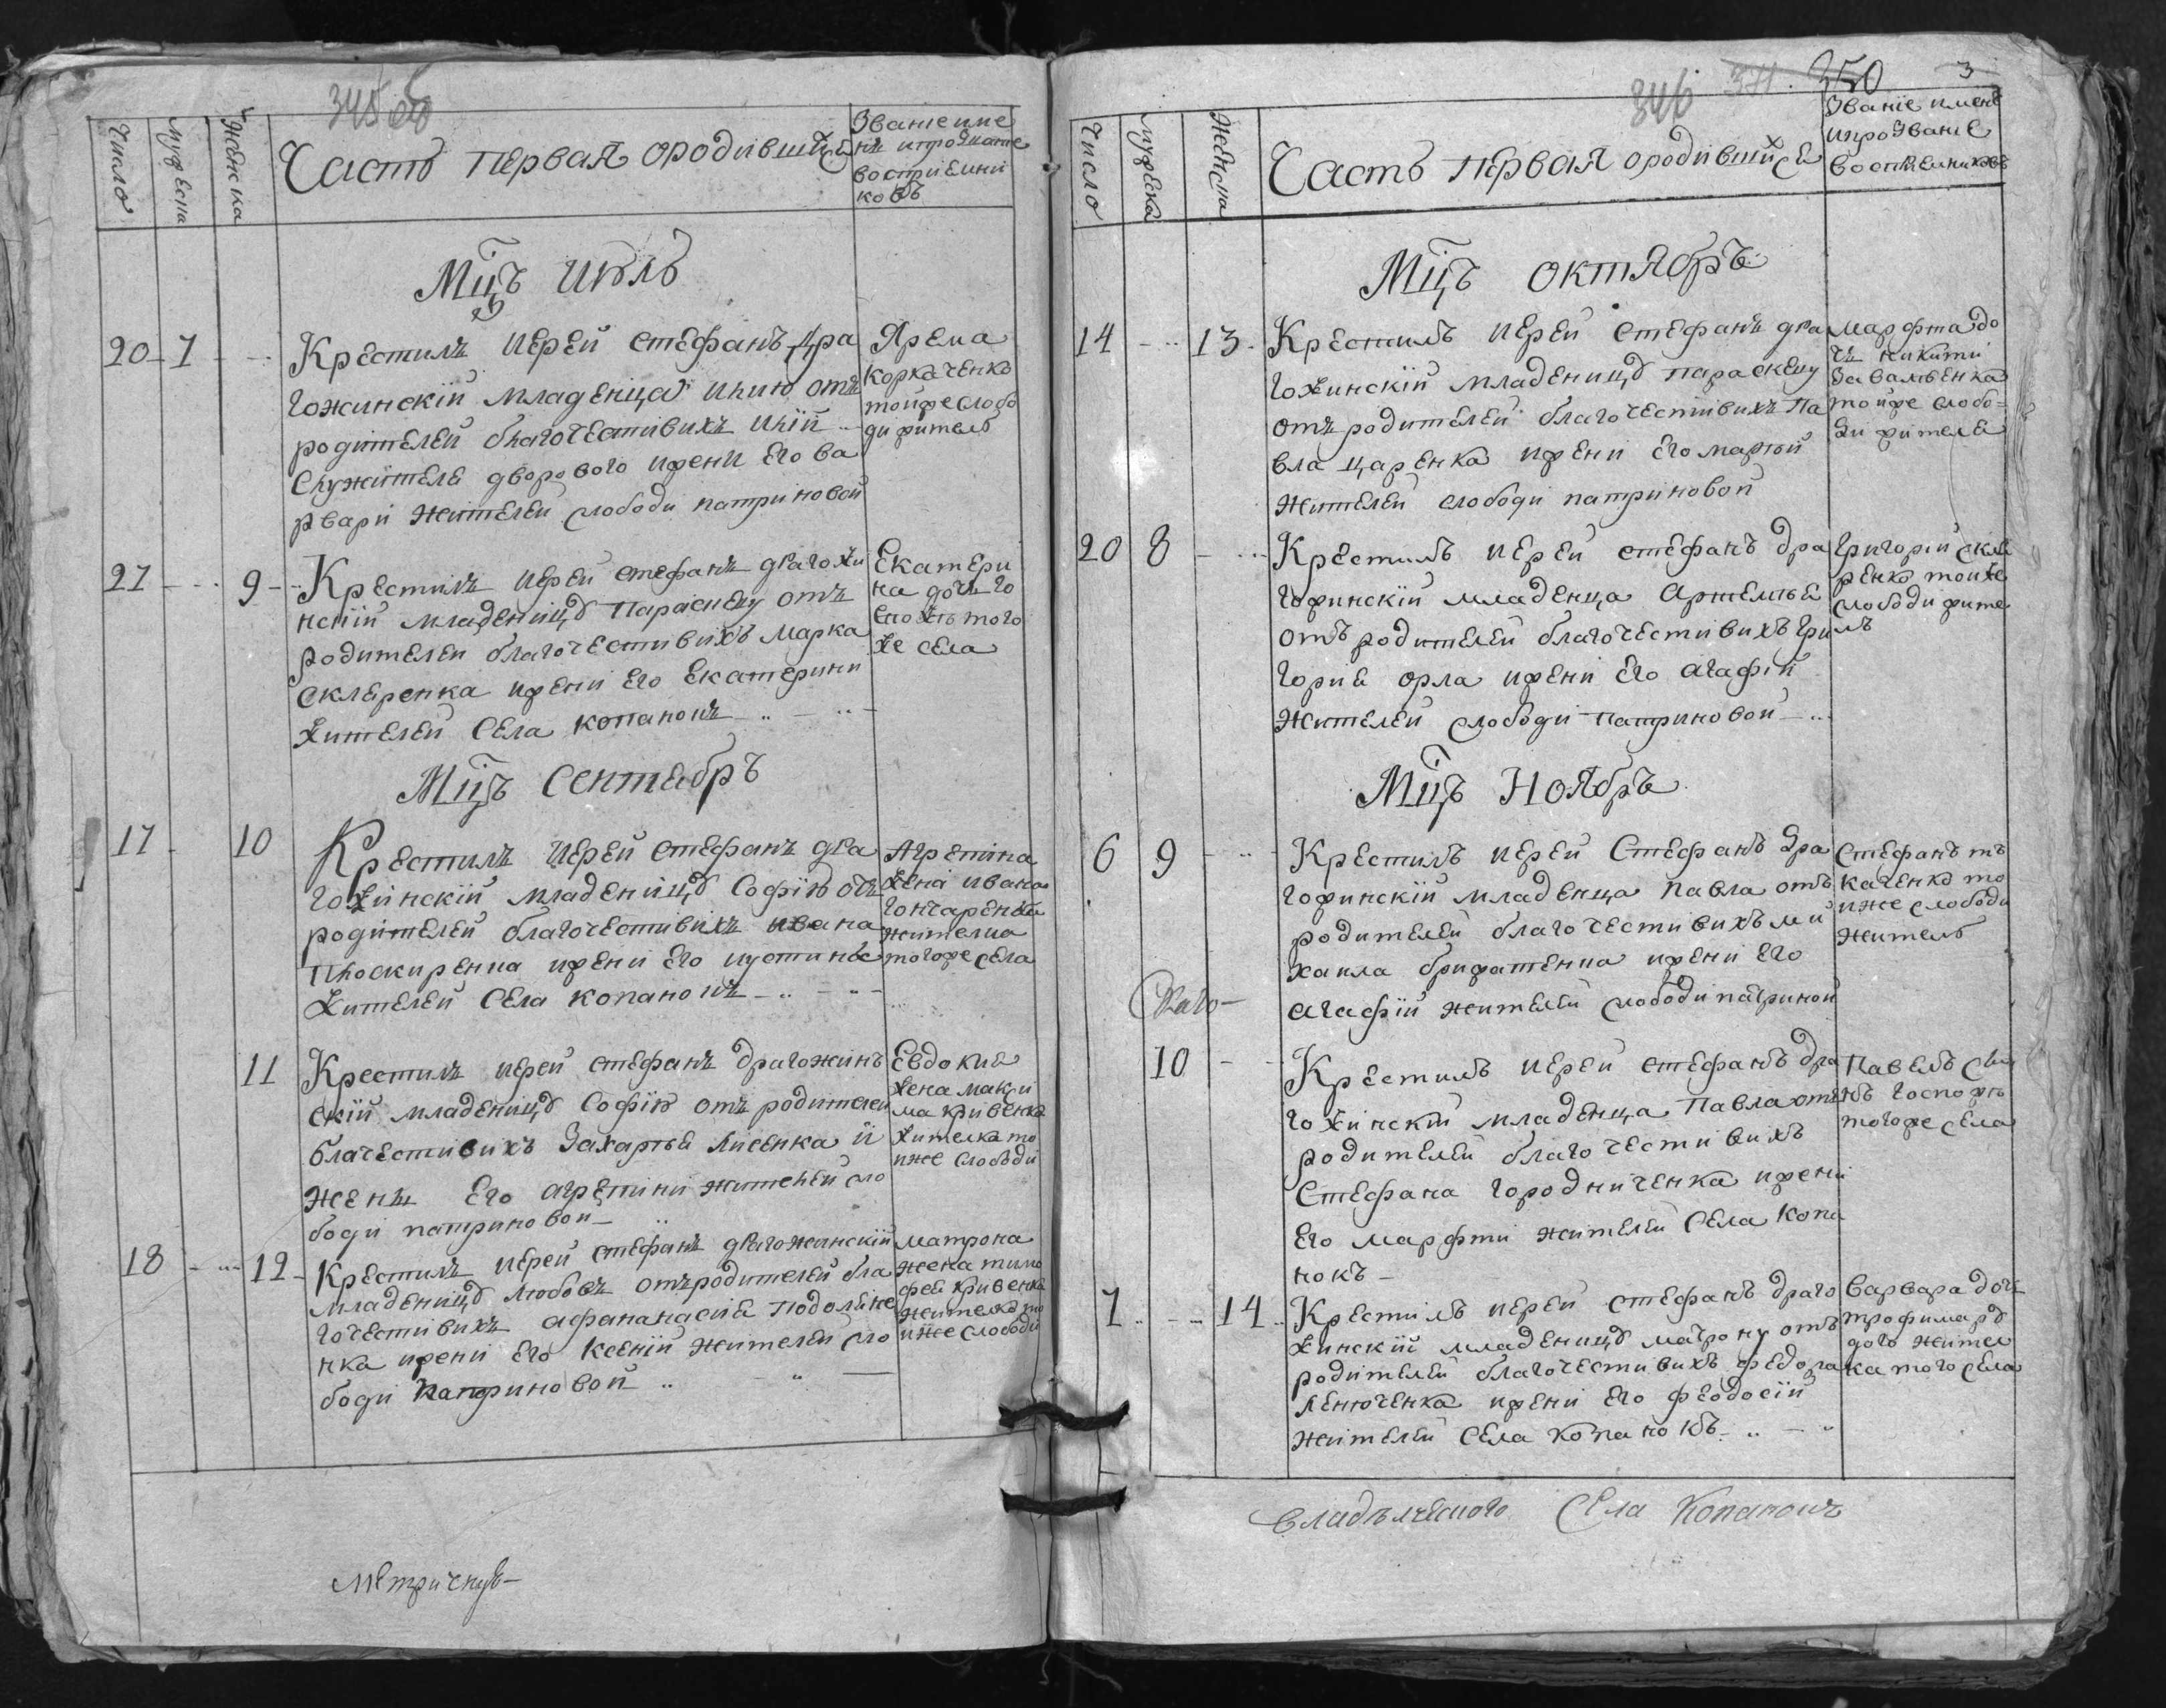 345 об
Число
мужеска
женска
Часть первая ородившихся
Звание име
ни ипрозвание
восприемни
ковъ
Мцъ июль
20 7
Крестилъ иерей стефанъ дра
гожинскій младенца илию отъ
родителей благочестивихъ иліи
Служителя дворового ижени его ва
рвари жителей слободи патриновой
Ярема
коркаченко
тойже слобо
ди житель
27 9
Крестилъ иерей стефанъ драгожи
нскій младеницу параскеву отъ
родителей благочестивихъ марка
скляренка ижени его екатерини
жителей села копанокъ
Екатери
на дочь го
того
же села
Мцъ сентябрь
17 10
Крестилъ иерей стефанъ дра
гожинскій младеницу софію отъ
родителей благочестивихъ ивана
ижени его иустины
жителей села копанокъ
Агрепина
жена ивана
гончаренка
жителка
тогоже села
11
Крестилъ иерей стефанъ драгожинъ
скій младеницу софію отъ родителей
блачестивихъ захарья лисенка и
жены его агрепини жителей сло
боди патриновой
Евдокия
жена макси
ма кривенка
жителка то
иже слободи
18 12
Крестилъ иерей стефанъ драгожинскій
младеницу любовъ отъ родителей бла
гочестивихъ афанасия подоляне
нка ижени его ксеніи жителей сло
боди патриновой
матрона
жена тимо
фея кривенка
жителка то
иже слободи
метричную
346 371 350 3
Число
мужска
женска
Часть первая ородившихся
Звание имене
ипрозвание
восприемниковъ
Мцъ октябрь
14 13
Крестилъ иерей стефанъ дра
гожинскій младеницу параскеву
отъ родителей благочестивихъ па
вла царенка ижени его марфи
жителей слободи патриновой
марфта до
чь никити
завалвенка
тойже слобо
ди жителя
20 8
Крестилъ иерей стефанъ дра
гожинскій младенца артемъя
отъ родителей благочестивихъ гри
гория орла ижени его агафіи
жителей слободи патриновой
григорій скля
ренко тоиже
слободи жите
лъ
Мцъ ноябрь
6 9
Крестилъ иерей стефанъ дра
гожинскій младенца павла отъ
родителей благочестивихъ ми
хаила брижатенка ижени его
агафіи жителей слободи патриной
стефанъ тъ
каченко то
иже слободи
житель
10
Крестилъ иерей стефанъ дра
гожинскій младенца павла отъ
родителей благочестивихъ
стефана городниченка ижени
его марфти жителей села копа
нокъ
павелъ
тогоже села
7 14
Крестилъ иерей стефанъ драго
жинскій младеницу матрону отъ
родителей благочестивихъ федора
ленюченка ижени его феодосіи
жителей села копанокъ
варвара дочь
трофима
жител
ка того села
владълческого села копанокъ